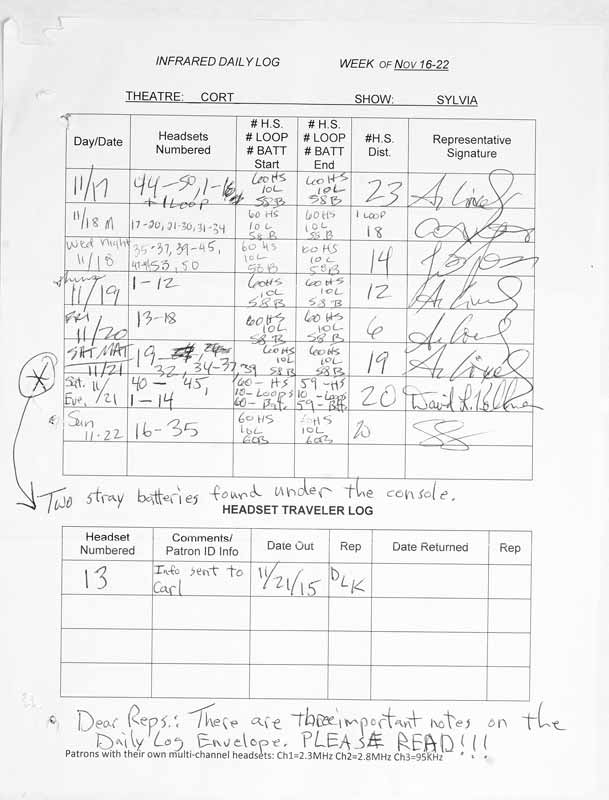 INFRARED DAILY LOG WEEK OF NOV 16-22
THEATRE: CORT SHOW: SYLVIA
Day/Date Headsets Numbered # H.S. # LOOP # BATT Start # H.S. # LOOP # BATT End #H.S. Dist. Representative Signature
11/17 44-50, 1-16 + 1 Loop 60HS 10L 58B 60HS 10L 58B 23
11/18 M 17-20, 21-30, 31-34 60HS 10L 58B 60HS 10L 58B 1 LOOP 18
Wed Night 11/18 35-37, 39-45, 53, 50 60HS 10L 58B 60HS 10L 58B 14
Thurs 11/19 1-12 60HS 10L 58B 60HS 10L 58B 12
FRI 11/20 13-18 60HS 10L 58B 60HS 10L 58B 6
SAT. MAT 11/21 19- 32, 34-37, 39 60HS 10L 58B 60HS 10L 58B 19
Sat. 11/21 Eve. 40-45, 1-14 60-HS 10-Loops 60-Batt. 59-HS 10-Loops 59-Batt. 20
Sun 11-22 16-35 60HS 10L 60B HS 10L 60B 20
Two stray batteries found under the console.
HEADSET TRAVELER LOG
Headset Numbered Comments/ Patron ID Info Date Out Rep Date Returned Rep
13 Info sent to Carl 11/21/15 DLK
Dear Reps.: There are three important notes on the
Daily Log Envelope. PLEASE READ!!!
Patrons with their own multi-channel headsets: Ch1=2.3MHz Ch2=2.8MHz Ch3=95KHz